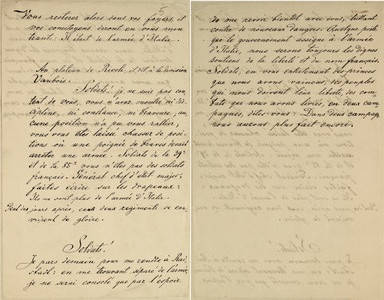 Vous rentrerez alors dans vos foyers, et
vos concitoyens diront en vous mon-
trant: Il était de l'armée d'Italie.
Au plateau de Rivoli, et dit à la division
Vaubois:
Soldats! je ne suis pas con-
tent de vous, vous n'avez montré ni dis-
cipline, ni constance, ni bravoure, au-
cune position n'a pu vous rallier,
vous vous êtes laissé chasser de posi-
tions où une poignée de braves devait
arrêter une armée. Soldats de la 39e
et de la 85e vous n'êtes pas des soldats
français. Général chef d'état major,
faites écrire sur les drapeaux:
Ils ne sont plus de l'armée d'Italie.
jours après, ces deux régiments se cou-
vrirent de gloire.
Soldats!
Je pars demain pour me rendre à Ras-
tadt: en me trouvant séparé de l'armée
je ne serai consolé que par l'espoir
de me revoir bientôt avec vous, luttant
contre de nouveaux dangers. Quelque poste
que le gouvernement assigne à l'armée
d'Italie, nous serons toujours les dignes
soutiens de la liberté et du nom français.
Soldats, en vous entretenant des princes
que vous avez vaincus, des peuples
qui vous doivent leur liberté, des com-
bats que nous avons livrés, en deux cam-
pagnes, dites-vous: Dans deux campagnes
nous aurons plus fait encore.